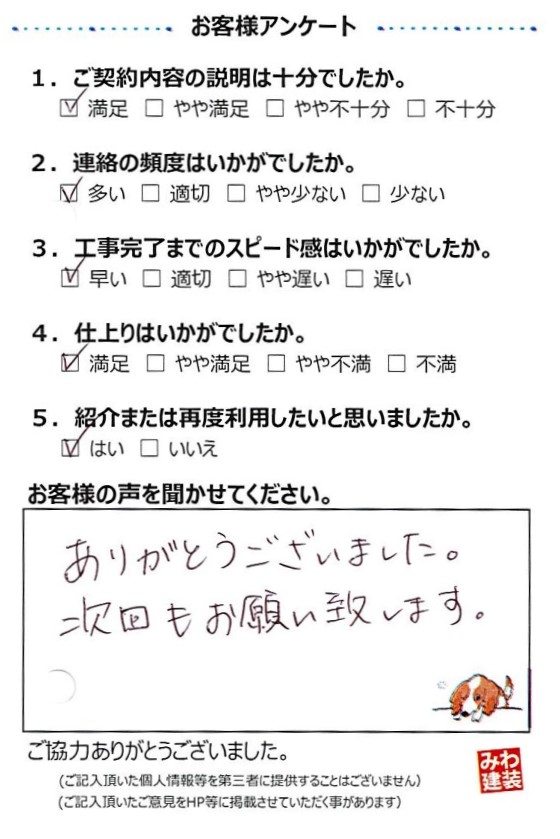 お客様アンケート
1．ご契約内容の説明は十分でしたか。
☑ 満足 □ やや満足 □ やや不十分 □ 不十分
2．連絡の頻度はいかがでしたか。
☑ 多い □ 適切 □ やや少ない □ 少ない
3．工事完了までのスピード感はいかがでしたか。
☑ 早い □ 適切 □ やや遅い □ 遅い
4．仕上りはいかがでしたか。
☑ 満足 □ やや満足 □ やや不満 □ 不満
5．紹介または再度利用したいと思いましたか。
☑ はい □ いいえ
お客様の声を聞かせてください。
ありがとうございました。
次回もお願い致します。
ご協力ありがとうございました。
（ご記入頂いた個人情報等を第三者に提供することはございません）
（ご記入頂いたご意見をHP等に掲載させていただく事があります）
みわ
建装